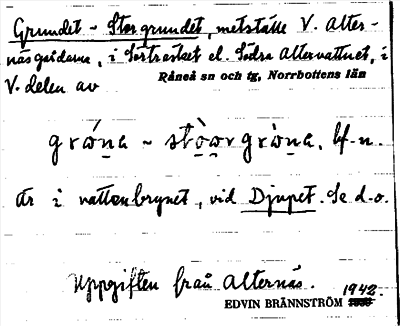 Grundet - Storgrundet, metställe V. Alter-
näsgårdarna, i Sörträsket el. Södra Altervattnet, i
V. delen av Råneå sn och tg, Norrbottens län
grώ̣na ~ stò̤ω̤rgrὼ̤na. bf-n.
Är i vattenbrynet, vid Djupet. Se d.o.
Uppgiften från Alternäs.
1942.
EDVIN BRÄNNSTRÖM